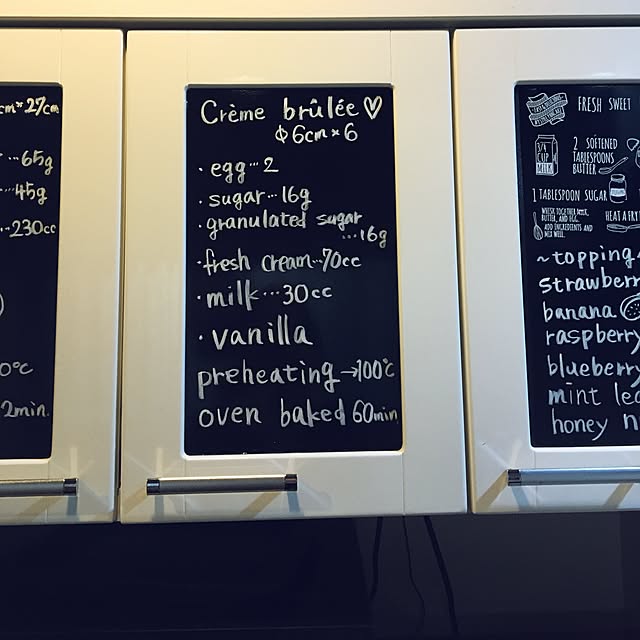 cm*27cm
…65g
…45g
…230cc
0°c
2min.
Crème brûlée♡
Φ6cm*6
・egg…2
・sugar…16g
・granulated sugar
…16g
・fresh cream…70cc
・milk…30cc
・vanilla
preheating→100℃
oven baked 60min
FRESH SWEET
3/4 CUP MILK
2 SOFTENED
TABLESPOONS
BUTTER
1 TABLESPOON SUGAR
WHISK TOGETHER MILK,
BUTTER, AND EGG.
ADD INGREDIENTS AND
MIX WELL.
HEAT A FRY
~topping~
strawberr
banana
raspberry
blueberry
mint lea
honey n